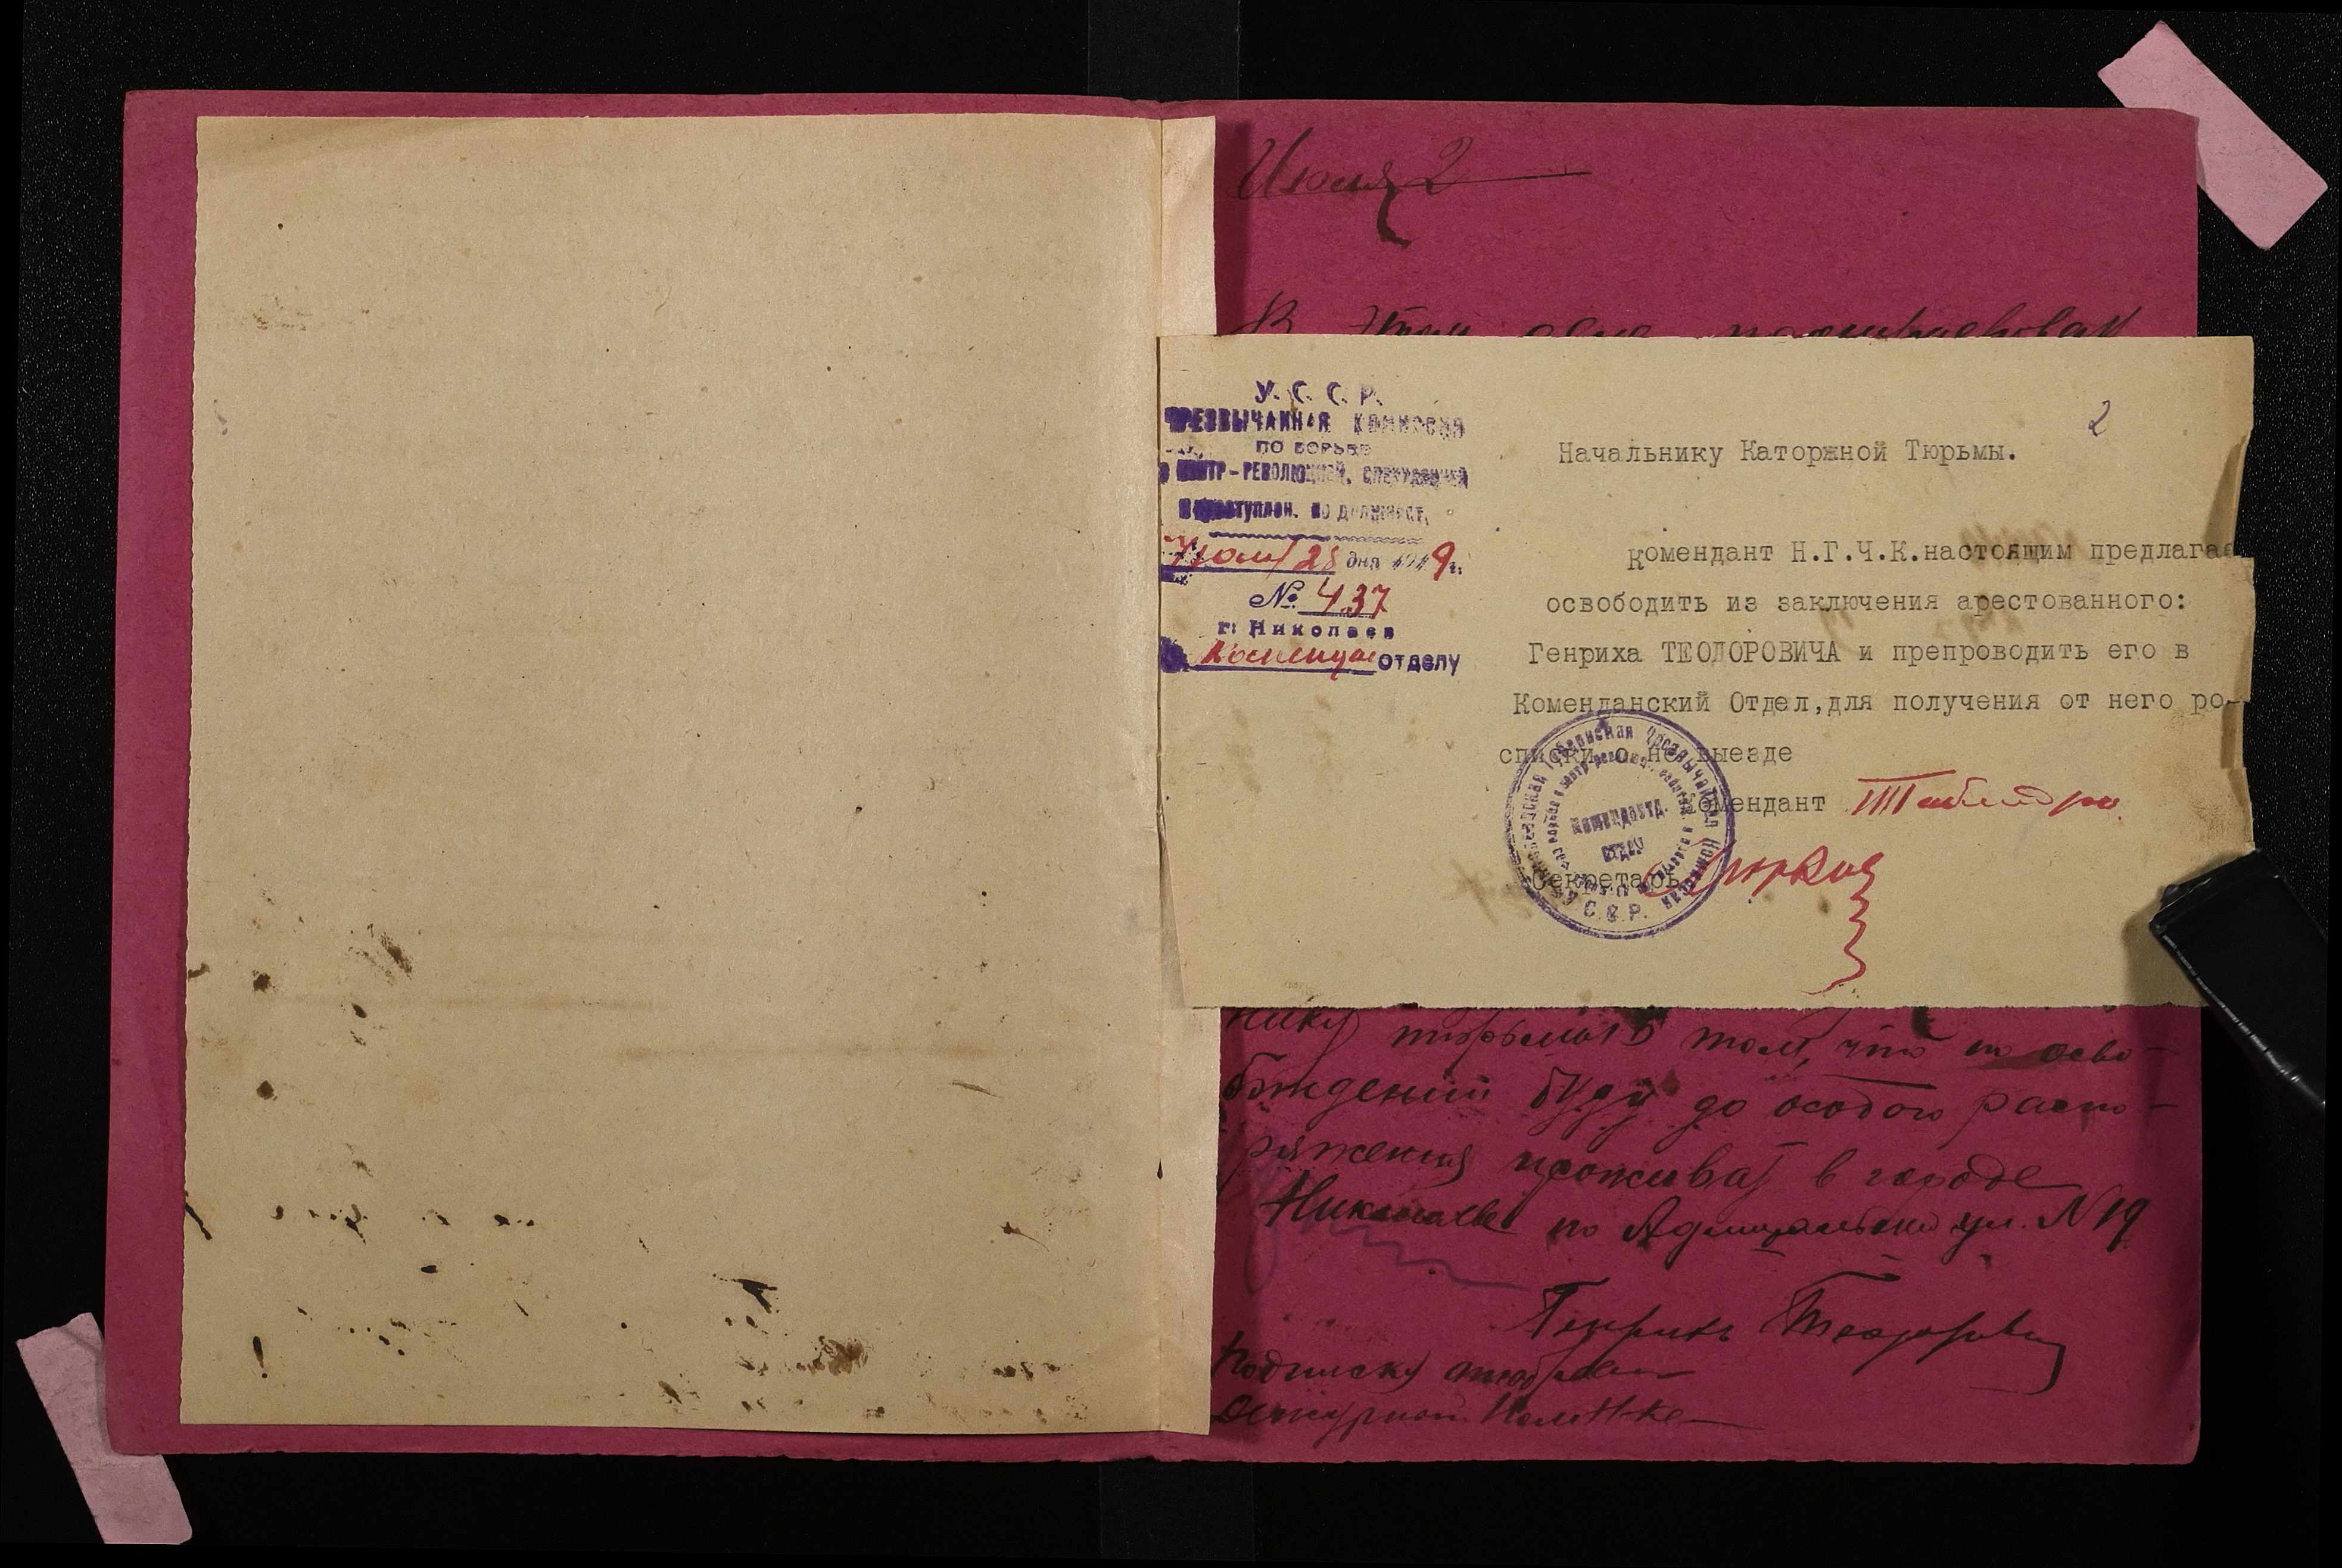 Июля 2
В
У. С. С. Р.
ЧРЕЗВЫЧАЙНАЯ КОМИССИЯ
ПО БОРЬБЕ
с КОНТР-РЕВОЛЮЦИЕЙ, СПЕКУЛЯЦИЕЙ
и преступлен. по должност.
28 дня 1919 г.
№ 437
г. Николаев
отделу
2
Начальнику Каторжной Тюрьмы.
Комендант Н.Г.Ч.К.настоящим предлагае
освободить из заключения арестованного:
Генриха ТЕОДОРОВИЧА и препроводить его в
Коменданский Отдел,для получения от него ро-
списки о не выезде
Комендант
Секретарь
Губернская Чрезвычайная Комиссия
отдел
С.С.Р.
нику тюрьмы в том, что по осво-
бождении буду до особого распо-
ряжения проживат в городе
Николаеве по Адмиральской ул. N 19
Генрих Теодорович
Подписку отобрал
Дежурный